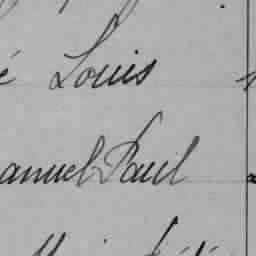 é Louis
anuel Paul